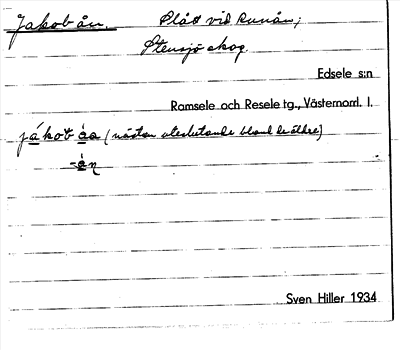 Jakob ån. Slåt vid Runån;
Stensjö skog.
Edsele s:n
Ramsele och Resele tg., Västernorrl. l.
jákob åa (nästan uteslutande bland de äldre)
-ån
Sven Hiller 1934